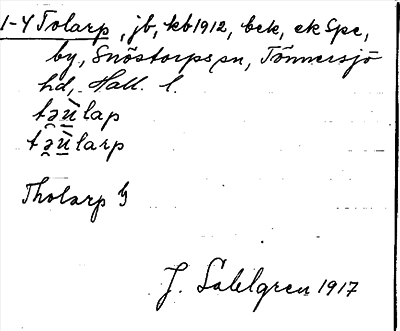 1-4 Tolarp, jb, kb 1912, bek, ek Spe,
by, Snöstorps sn, Tönnersjö
hd, Hall. l.
tə̯ùlap
tə̯ùlarp
Tholarp
J. Sahlgren 1917